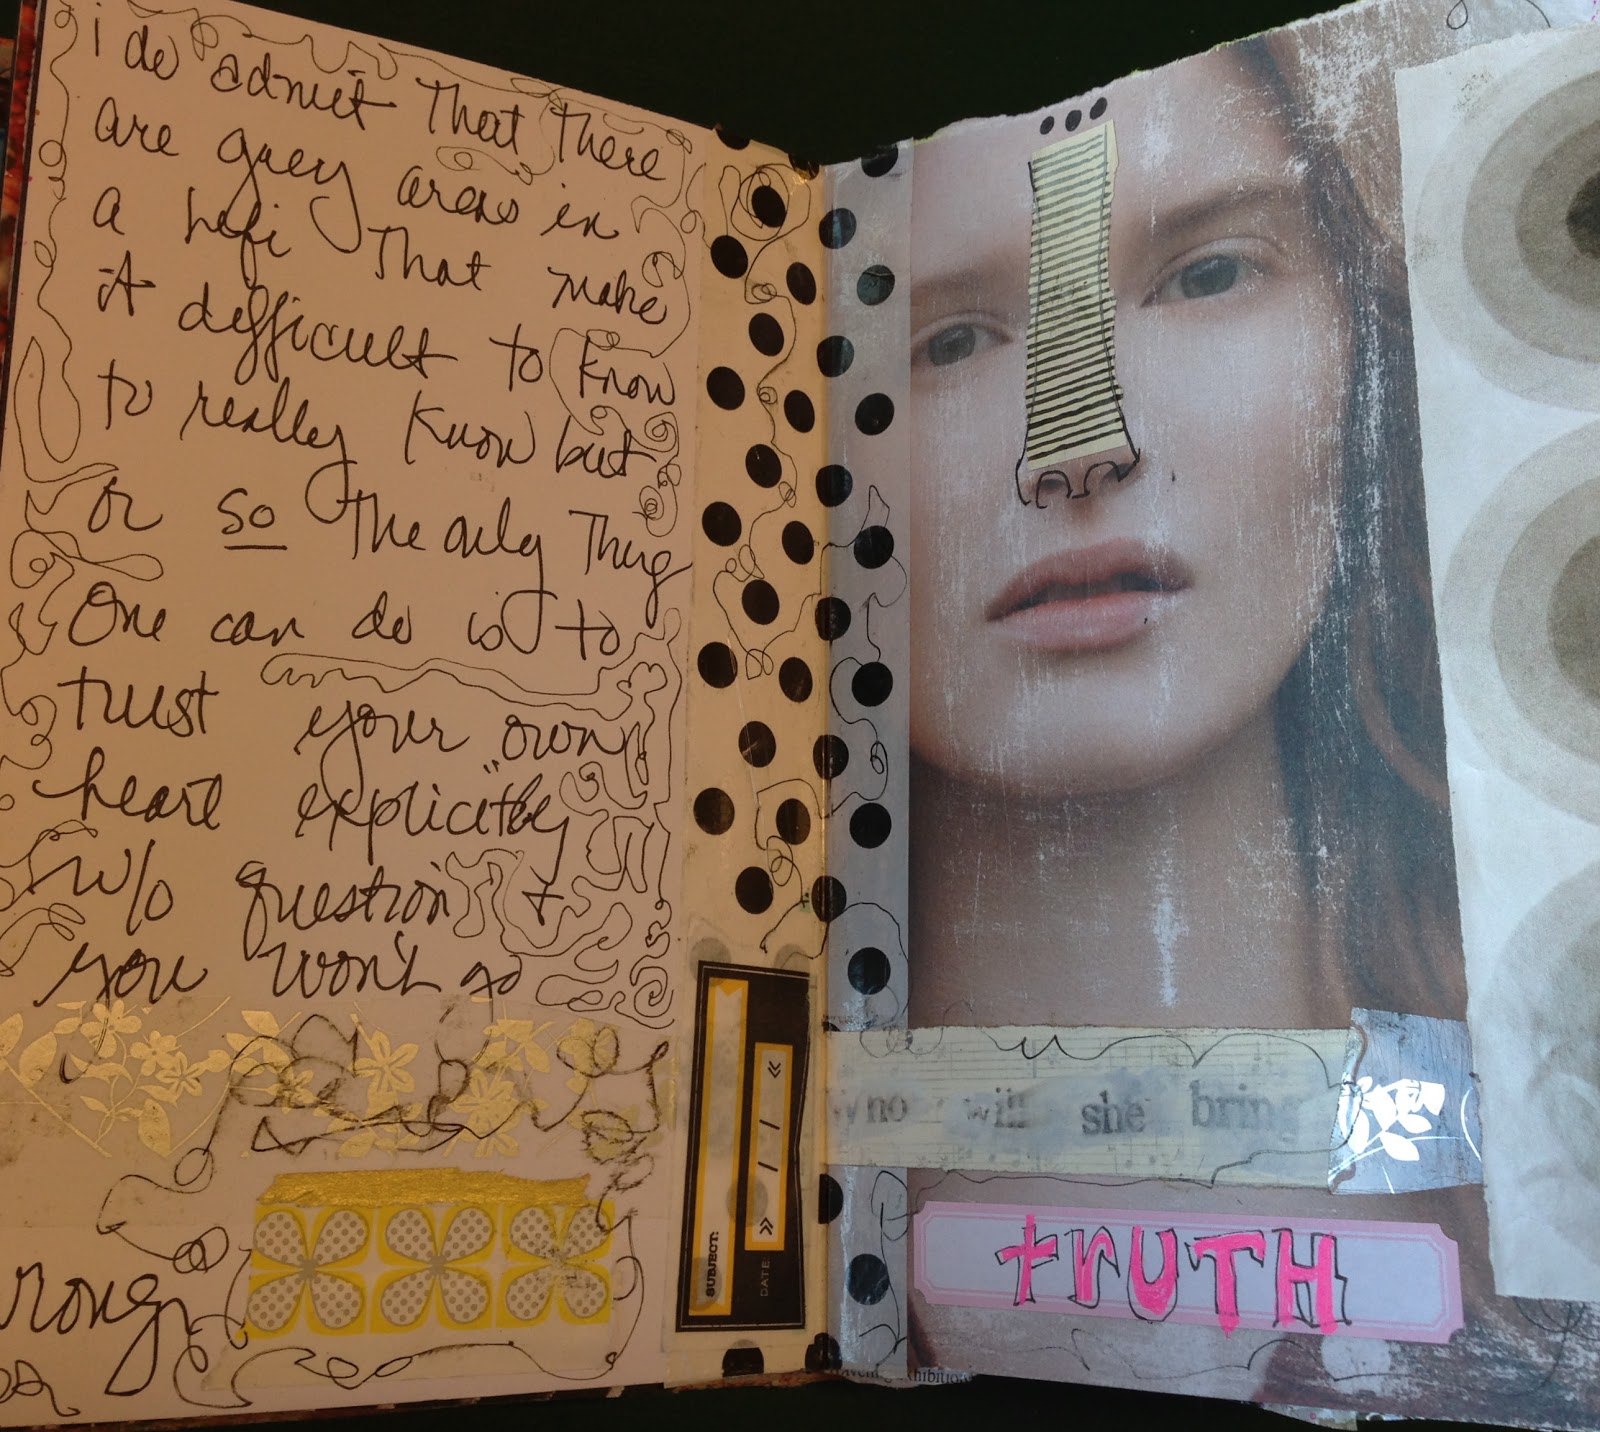 i do admit That There
are grey areas in
a life That make
it difficult to know
to really know but
or so The only Thing
One can do is to
trust your own
heart explicitly
w/o question +
you won't go
rong
SUBJECT:
DATE / /
who will she bring
trUTH